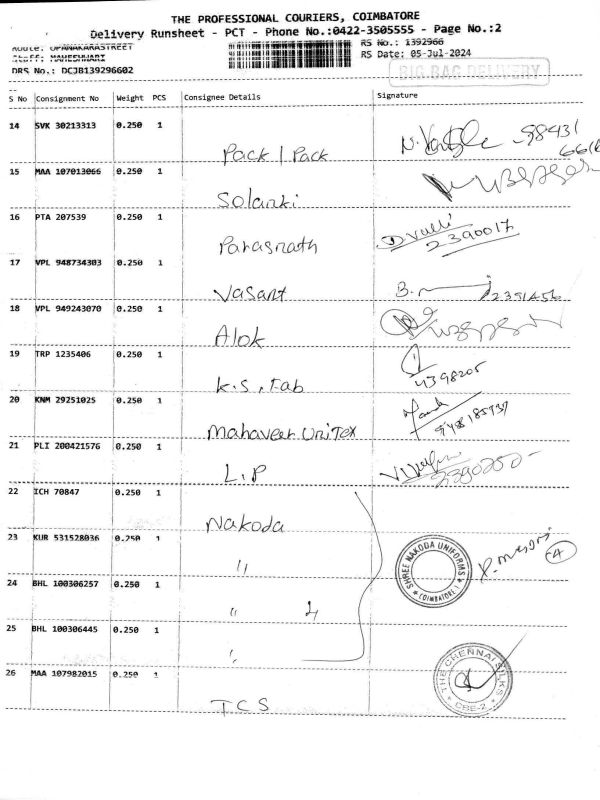 THE PROFESSIONAL COURIERS, COIMBATORE
Delivery Runsheet - PCT - Phone No.:0422-3505555 - Page No.:2
Route: OPANAKARASTREET RS No.: 1392966
Staff: MAHESHWARI RS Date: 05-Jul-2024
DRS No.: DCJB139296602 BIG BAG DELIVERY
S No Consignment No Weight PCS Consignee Details Signature
14 SVK 30213313 0.250 1
Pack 1 Pack 98431
15 MAA 107013066 0.250 1
Solanki
16 PTA 207539 0.250 1
Parasnath D Valli 2390017
17 VPL 948734303 0.250 1
Vasant B. 2391456
18 VPL 949243070 0.250 1
Alok
19 TRP 1235406 0.250 1
K.S. Fab 4398205
20 KNM 29251025 0.250 1
Mahaveer UniTex
21 PLI 200421576 0.250 1
L.P
22 ICH 70847 0.250 1
Nakoda
23 KUR 531528036 0.250 1
" SHREE NAKODA UNIFORMS COIMBATORE
24 BHL 100306257 0.250 1
" 4
25 BHL 100306445 0.250 1
"
26 MAA 107982015 0.250 1
TCS THE CHENNAI SILKS CBE-2